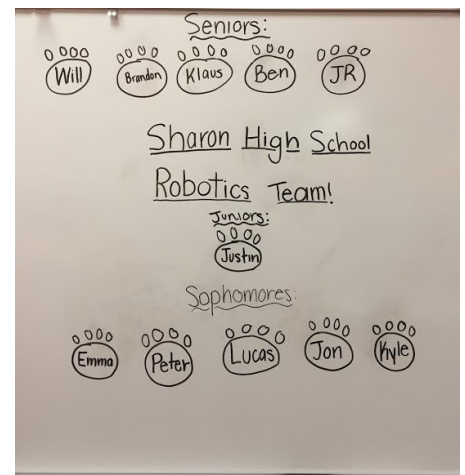 Seniors:
Will Brandon Klaus Ben JR
Sharon High School
Robotics Team!
Juniors:
Justin
Sophomores:
Emma Peter Lucas Jon Kyle